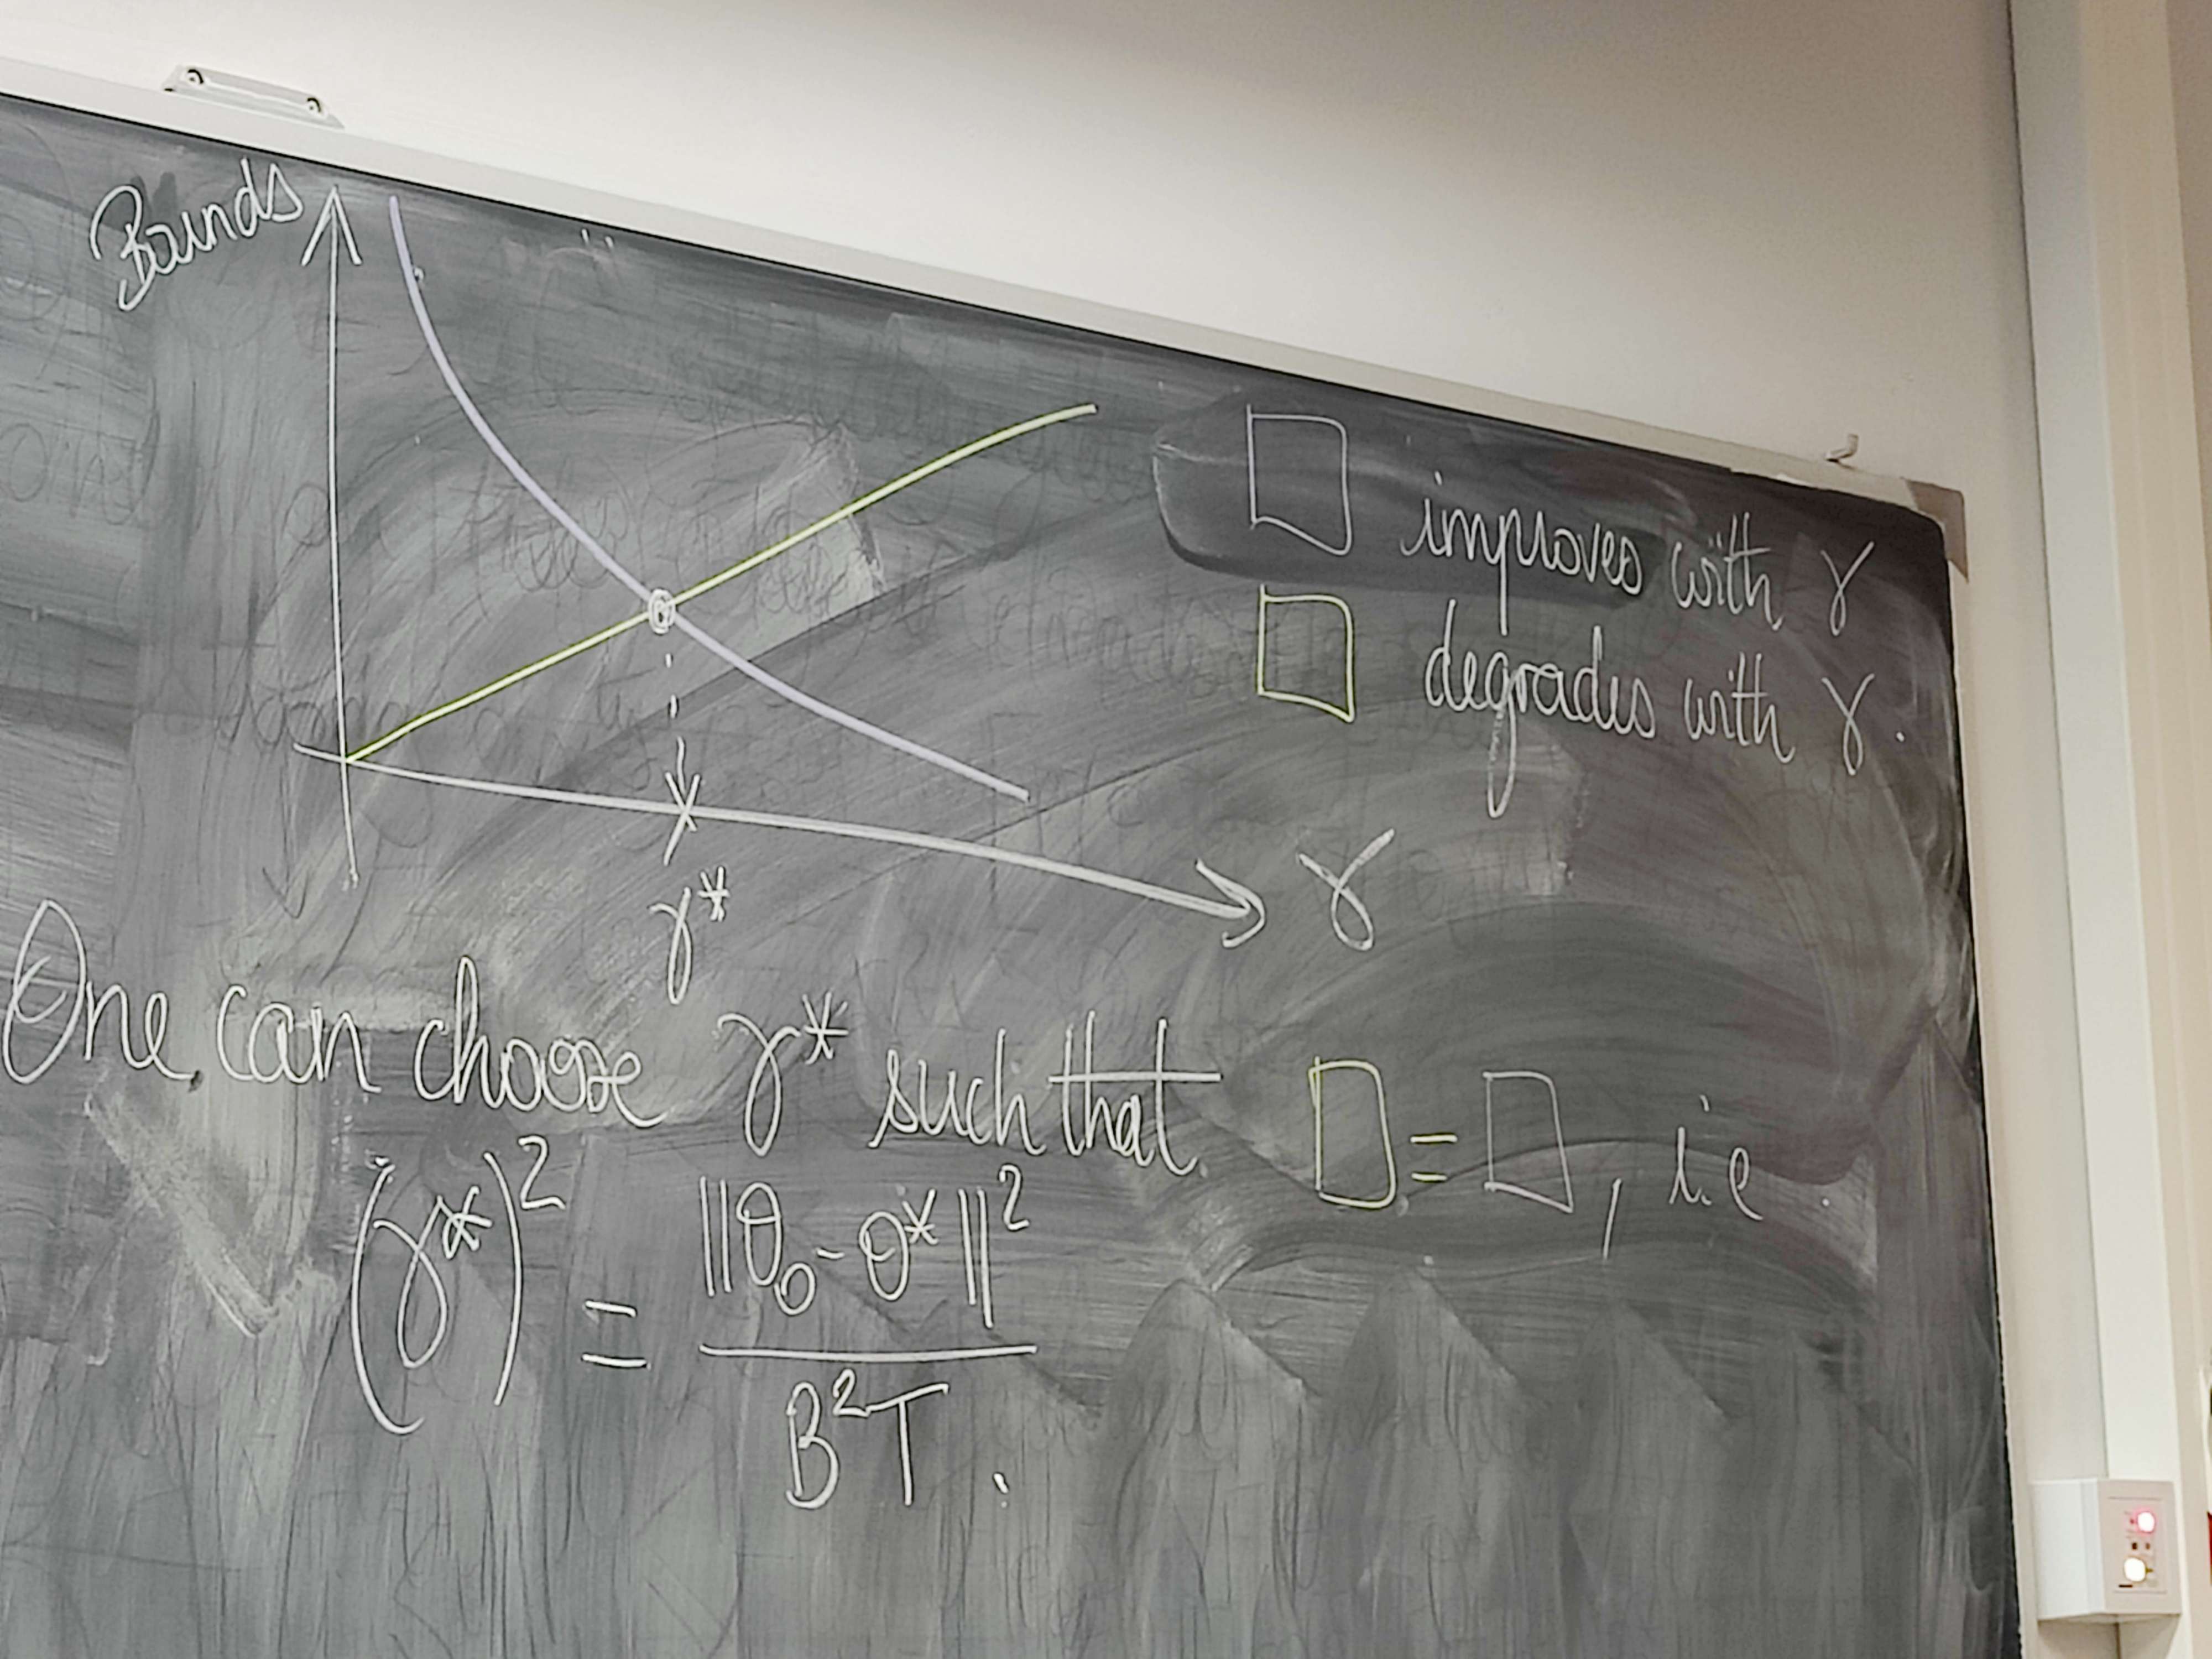 Bounds
□ improves with γ
□ degrades with γ.
γ
γ*
One can choose γ* such that □ = □, i.e
(γ*)² = ||θ₀ - θ*||² / B²T.